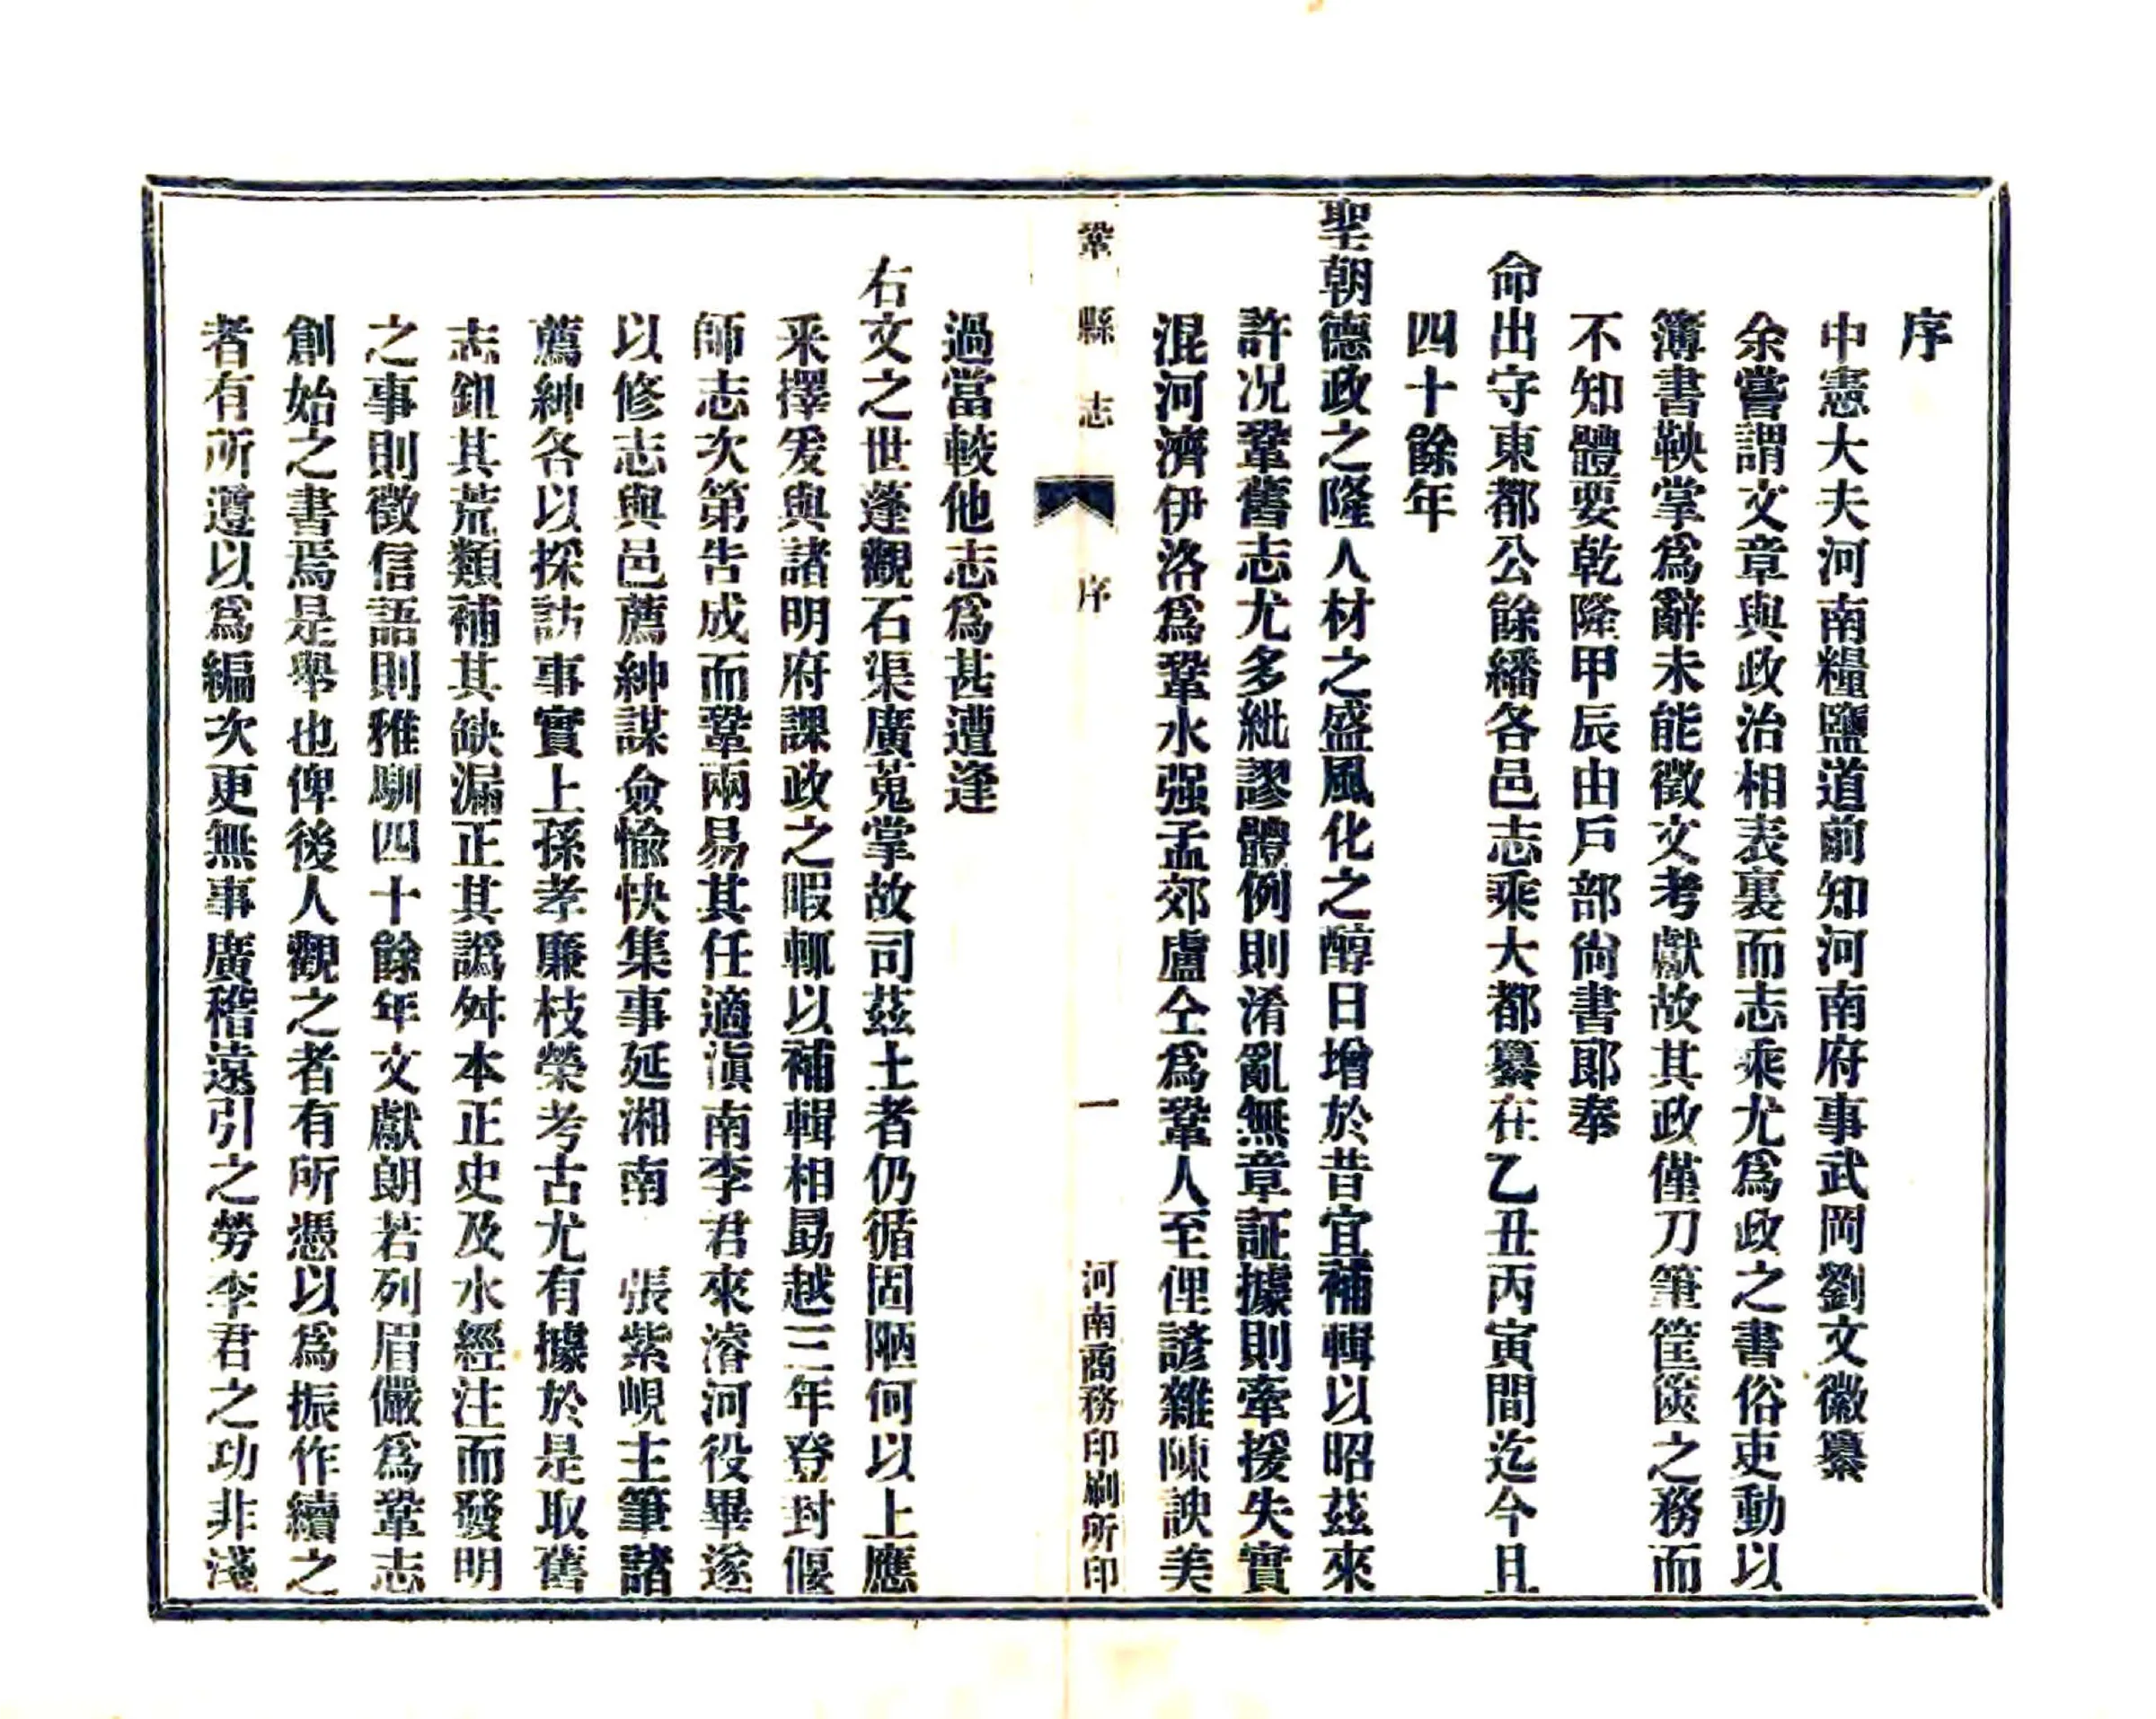 序
中憲大夫河南糧鹽道前知河南府事武岡劉文徽纂
余嘗謂文章與政治相表裏而志乘尤爲政之書俗吏動以
簿書鞅掌爲辭未能徵文考獻故其政僅刀筆筐篋之務而
不知體要乾隆甲辰由戶部尙書郎奉
命出守東都公餘繙各邑志乘大都纂在乙丑丙寅間迄今且
四十餘年
聖朝德政之隆人材之盛風化之醇日增於昔宜補輯以昭茲來
許况鞏舊志尤多紕謬體例則淆亂無章証據則牽援失實
混河濟伊洛爲鞏水强孟郊盧仝爲鞏人至俚諺雜陳諛美
鞏縣志 序 一 河南商務印刷所印
過當較他志爲甚遭逢
右文之世蓬觀石渠廣蒐掌故司茲土者仍循固陋何以上應
釆擇爰與諸明府課政之暇輒以補輯相勗越三年登封偃
師志次第告成而鞏兩易其任適滇南李君來濬河役畢遂
以修志與邑薦紳謀僉愉快集事延湘南 張紫峴主筆諸
薦紳各以採訪事實上孫孝廉枝榮考古尤有據於是取舊
志鈕其荒類補其缺漏正其譌舛本正史及水經注而發明
之事則徵信語則雅馴四十餘年文獻朗若列眉儼爲鞏志
創始之書焉是舉也俾後人觀之者有所憑以爲振作續之
者有所遵以爲編次更無事廣稽遠引之勞李君之功非淺